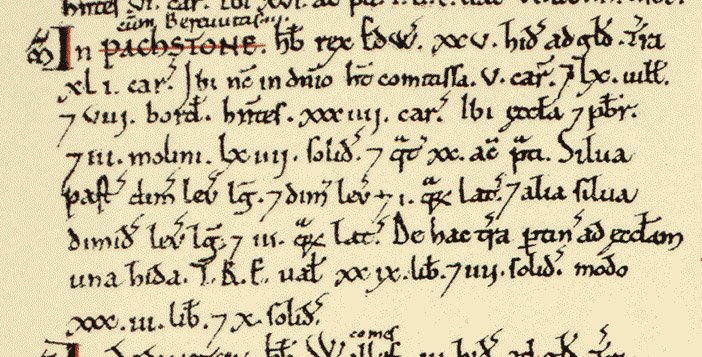 hñtes vi. car̃. Ibi xvi. ac̃
cum Berewitis .iii.
M̃ In PACHSTONE. hb̃ rex Edw̃. xxv. hid̃ ad gld̃. Tr̃a
xli. car̃. Ibi nc̃ in dñio ht̃ comitissa. v. car̃. ⁊ lx. uill̃.
⁊ viii. bord̃. hñtes. xxxiiii. car̃. Ibi eccl̃a ⁊ pbr̃.
⁊ iii. molini. lxiiii. solid̃. ⁊ qͣt̃ xx. ac̃ p̃ti. Silua
past̃ dim̃ leũ lg̃. ⁊ dim̃ leũ ⁊ i. qͣꝝ lat̃. ⁊ alia silua
dimid̃ leũ lg̃. ⁊ iii. qͣꝝ lat̃. De hac tr̃a ꝑtiñ ad eccl̃am
una hida. T.R.E. ual̃ xxix. lib̃. ⁊ iiii. solid̃. modo
xxx.iii. lib̃. ⁊ x. solid̃.